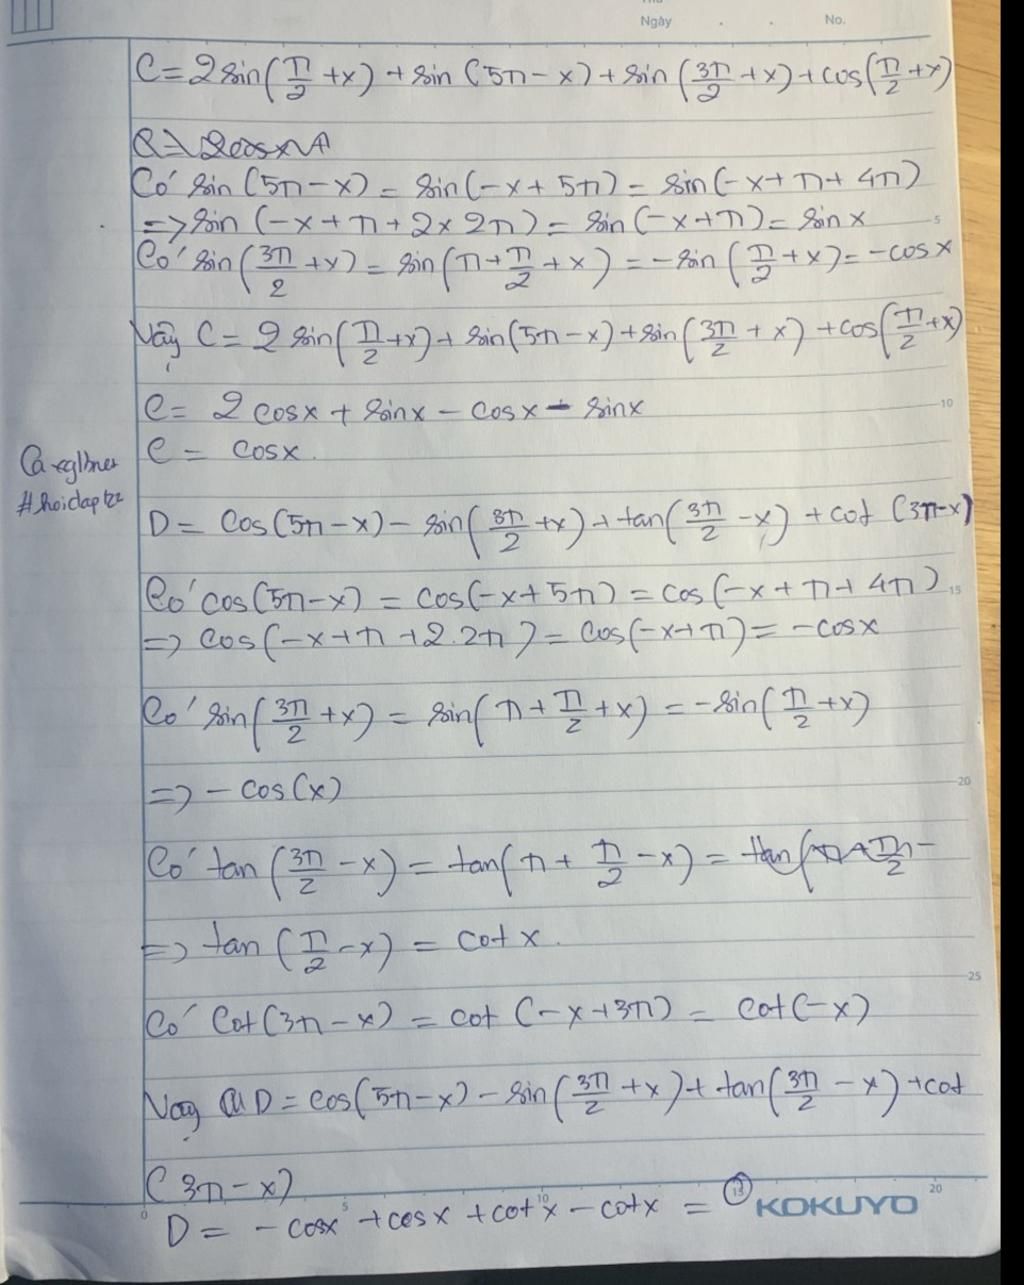 Ngày . . No.
C = 2 sin(π/2 + x) + sin (5π - x) + sin (3π/2 + x) + cos(π/2 + x)
Có sin (5π - x) = sin(-x + 5π) = sin(-x + π + 4π)
=> sin (-x + π + 2 x 2π) = sin(-x + π) = sin x
5
Có sin(3π/2 + x) = sin(π + π/2 + x) = - sin (π/2 + x) = - cos x
Vậy C = 2 sin(π/2 + x) + sin(5π - x) + sin(3π/2 + x) + cos(π/2 + x)
C = 2 cosx + sinx - cosx - sinx
10
C = cosx.
#hoidap
D = Cos(5π - x) - sin(3π/2 + x) + tan(3π/2 - x) + cot (3π - x)
Có cos(5π - x) = cos(-x + 5π) = cos(-x + π + 4π)
15
=> cos(-x + π + 2.2π) = cos(-x + π) = - cosx
Có sin(3π/2 + x) = sin(π + π/2 + x) = - sin(π/2 + x)
=> - cos(x)
20
Có tan (3π/2 - x) = tan(π + π/2 - x) =
=> tan (π/2 - x) = cot x.
25
Có Cot(3π - x) = cot (-x + 3π) = cot(-x)
Vậy D = cos(5π - x) - sin(3π/2 + x) + tan(3π/2 - x) + cot
(3π - x)
0 5 10 15 KOKUYO 20
D = - cosx + cosx + cot x - cotx = 0